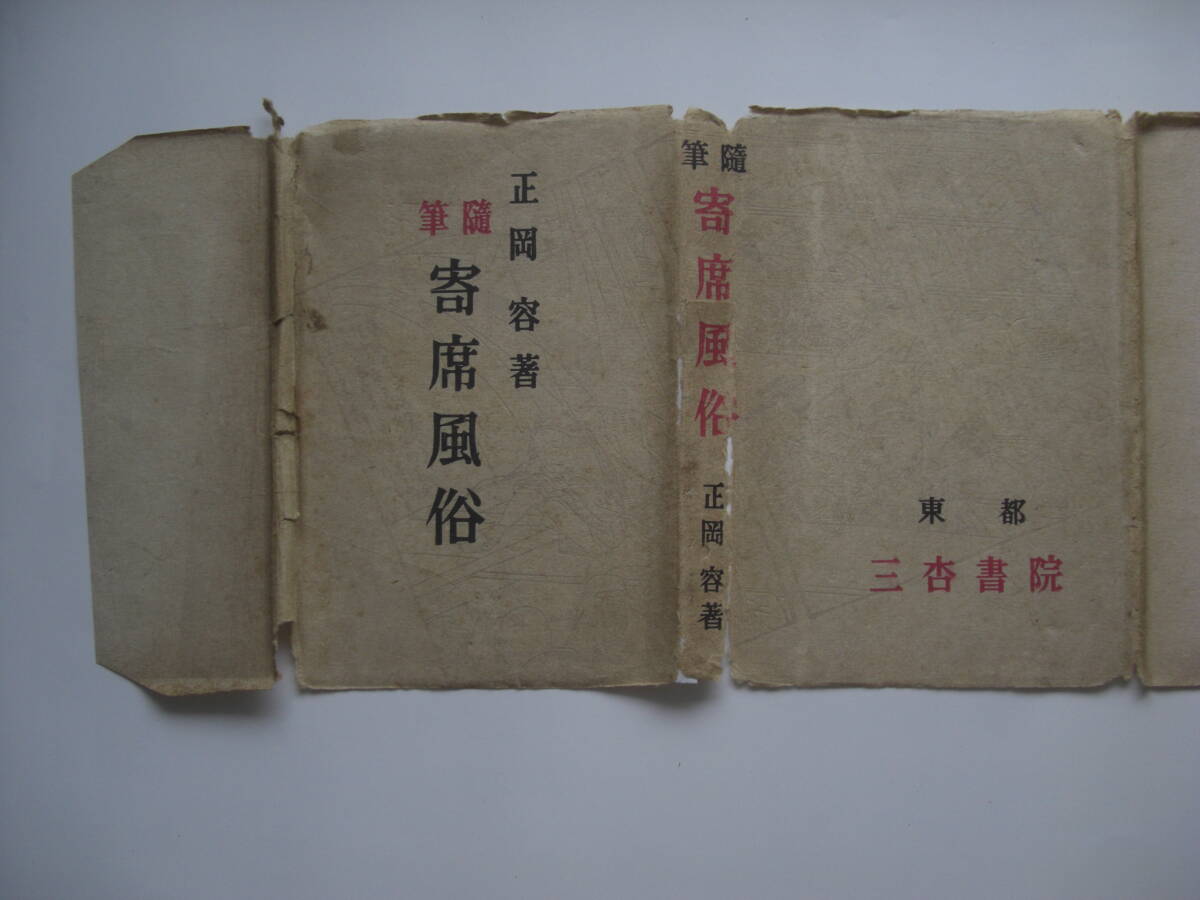 正岡容著
隨筆
寄席風俗
隨筆
寄席風俗
正岡容著
東都
三杏書院